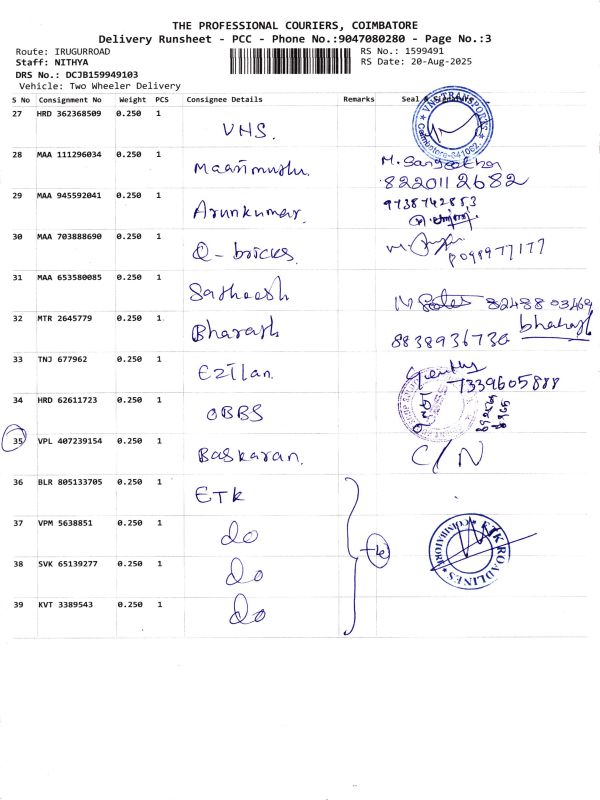 THE PROFESSIONAL COURIERS, COIMBATORE
Delivery Runsheet - PCC - Phone No.:9047080280 - Page No.:3
Route: IRUGURROAD
RS No.: 1599491
Staff: NITHYA
RS Date: 20-Aug-2025
DRS No.: DCJB159949103
Vehicle: Two Wheeler Delivery
S No Consignment No Weight PCS Consignee Details Remarks Seal &
27 HRD 362368509 0.250 1 VHS.
VNS TRANSPORTS
Coimbatore-641062.
28 MAA 111296034 0.250 1 Maarimuthu.
8220112682
29 MAA 945592041 0.250 1 Arunkumar. 9738742853
30 MAA 703888690 0.250 1 Q-bricks.
31 MAA 653580085 0.250 1 Satheesh 8248803469
32 MTR 2645779 0.250 1 Bharath 8838936730 bharath
33 TNJ 677962 0.250 1 Ezilan. 7339605888
34 HRD 62611723 0.250 1 OBBS
35 VPL 407239154 0.250 1 Baskaran. C/N
36 BLR 805133705 0.250 1 ETK
37 VPM 5638851 0.250 1 do
38 SVK 65139277 0.250 1 do
ETK ROADLINES
COIMBATORE
39 KVT 3389543 0.250 1 do